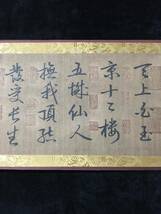 天上白玉
京十二楼
五城仙人
撫我頂结
发受长生